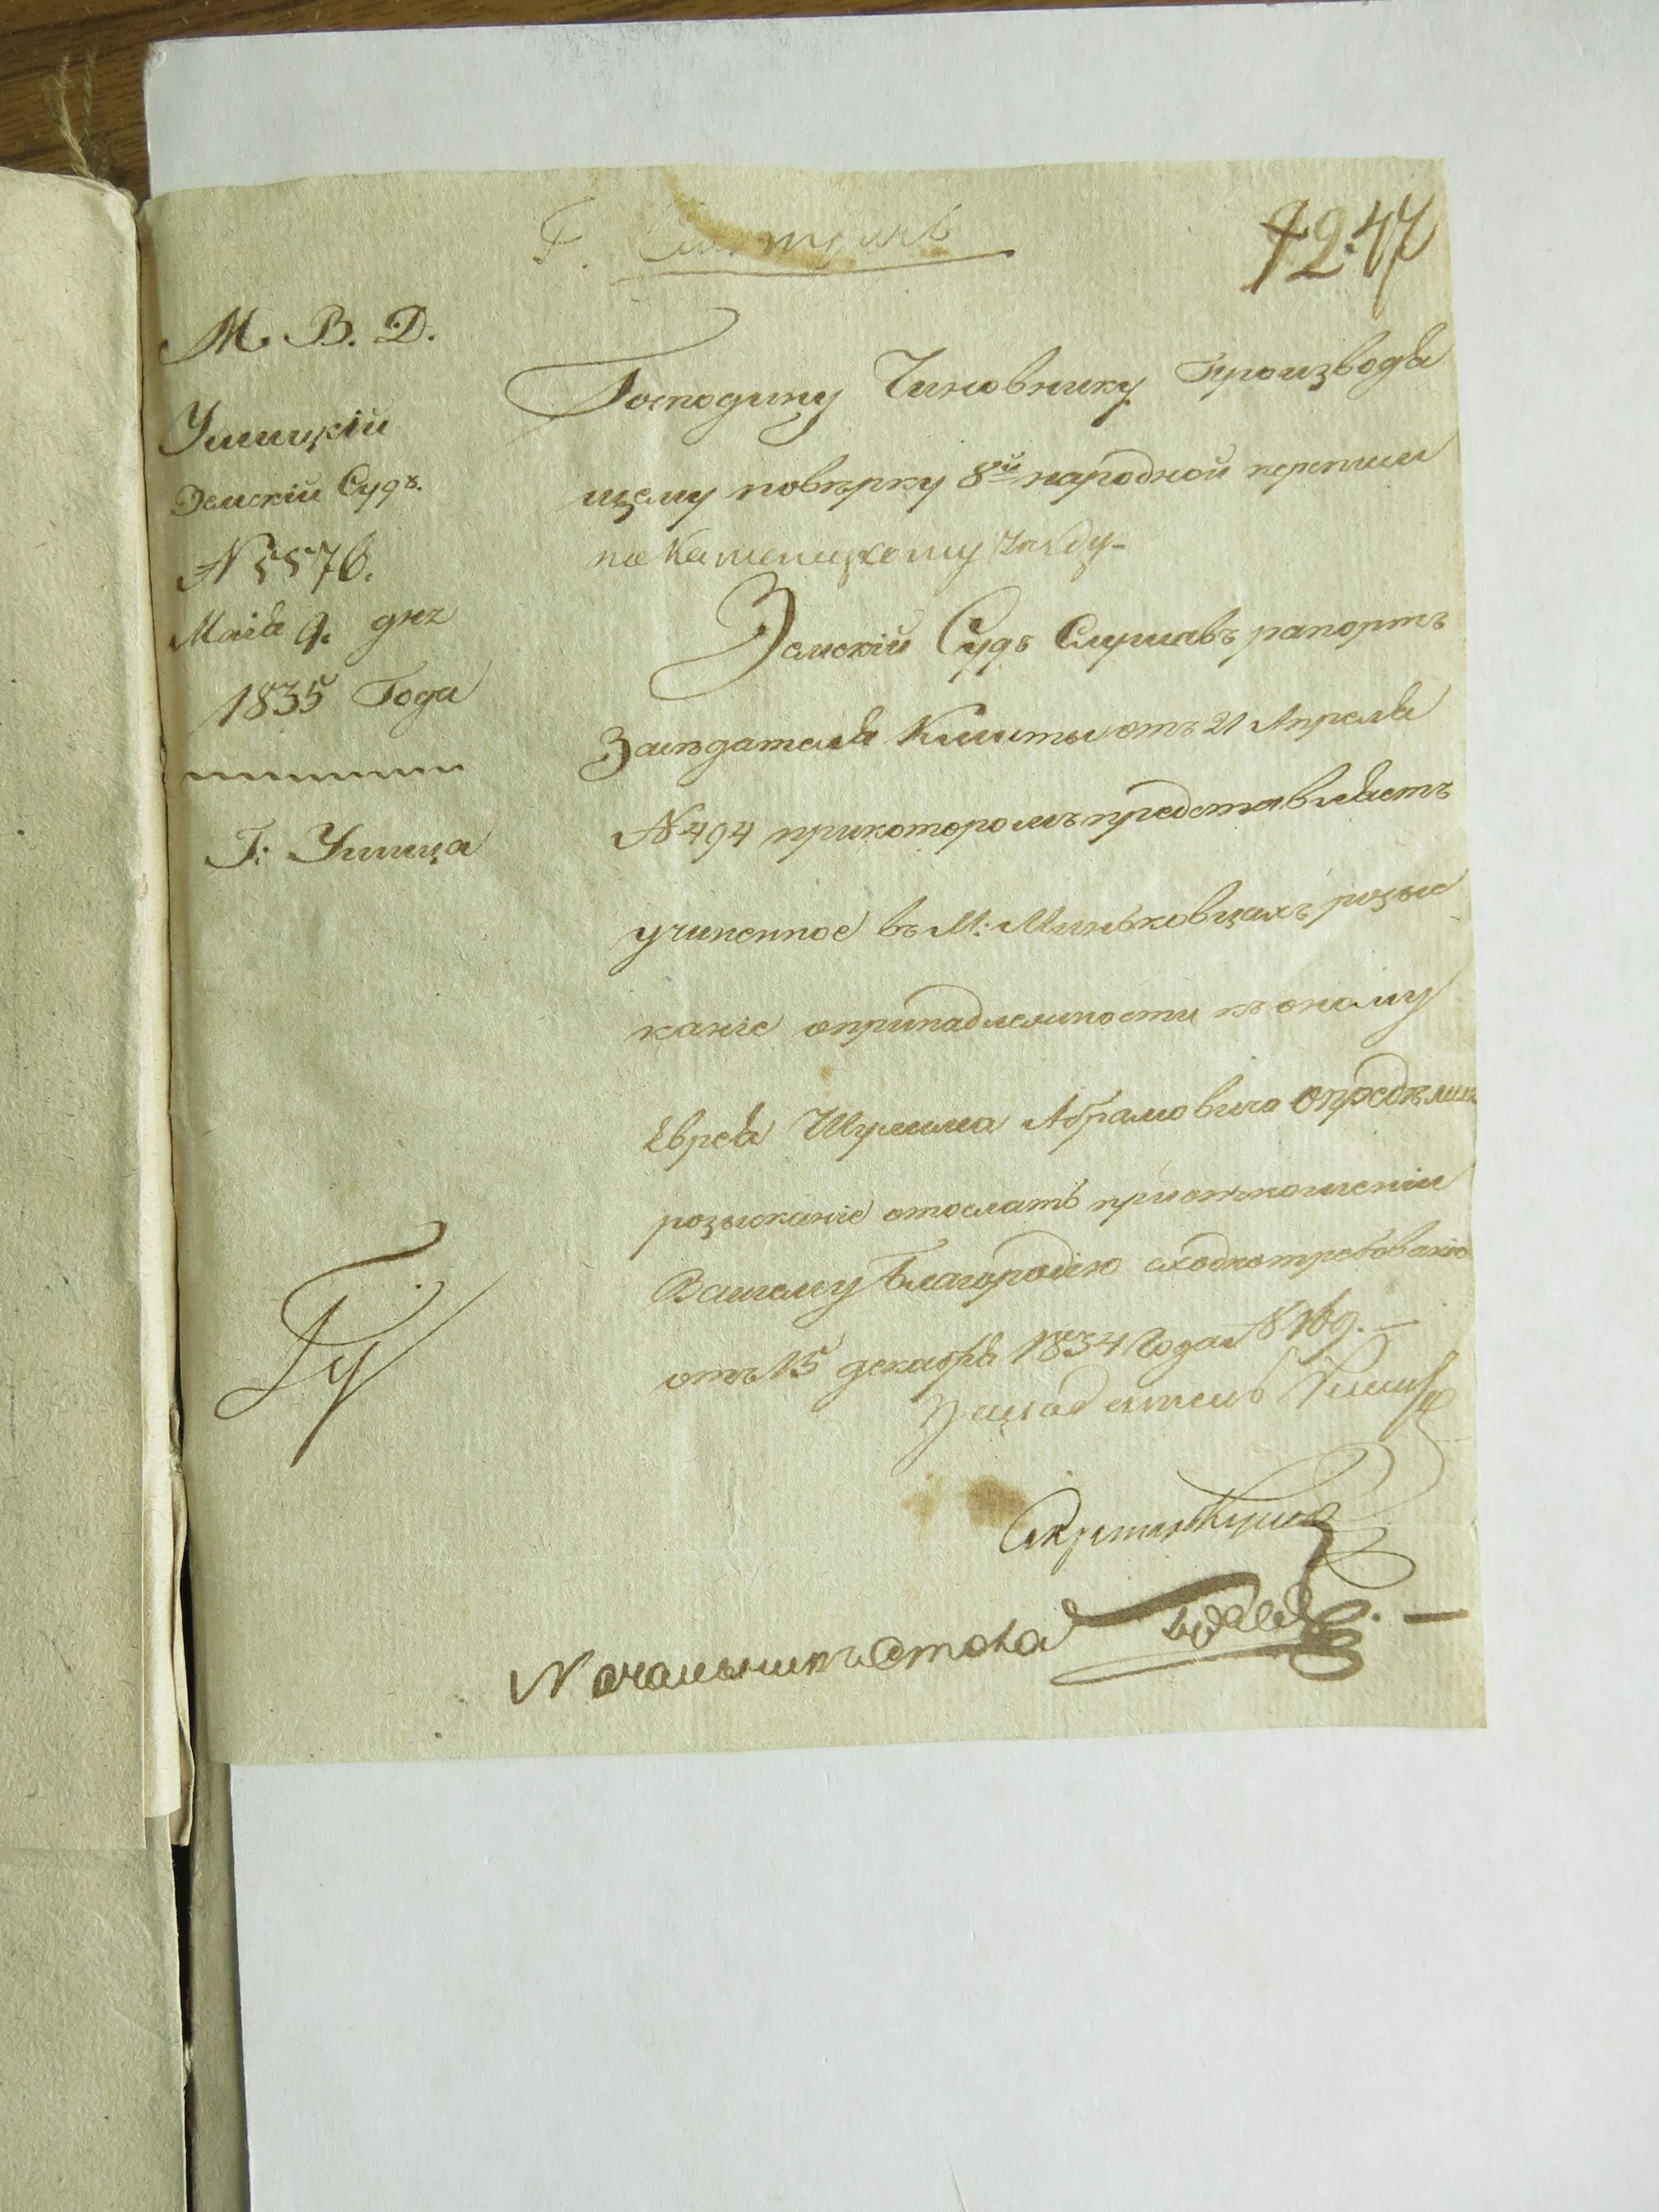 М. В. Д.
Ушицкій
Земскій Судъ.
№ 5576.
Маія 9. дня
1835 Года
Г: Ушица
47
Господину Чиновнику Производя
щему повѣрку 8й народной переписи
по Каменецкому уѣзду-
Земскій Судъ Слушавъ рапортъ
Засѣдателя Кишты отъ 21 Апреля
№ 494 прикоторомъ представляетъ
учиненное въ М: Миньковцахъ розыс
каніе опринадлежности къ оному
Еврея Шулима Абрамовича Определилъ
розысканіе отослать приотношеніи
Вашему Благородію сходнотребованію
отъ 15 декабря 1834 Года № 169. —
Засѣдатель
Секретарь
Начальникъ Стола